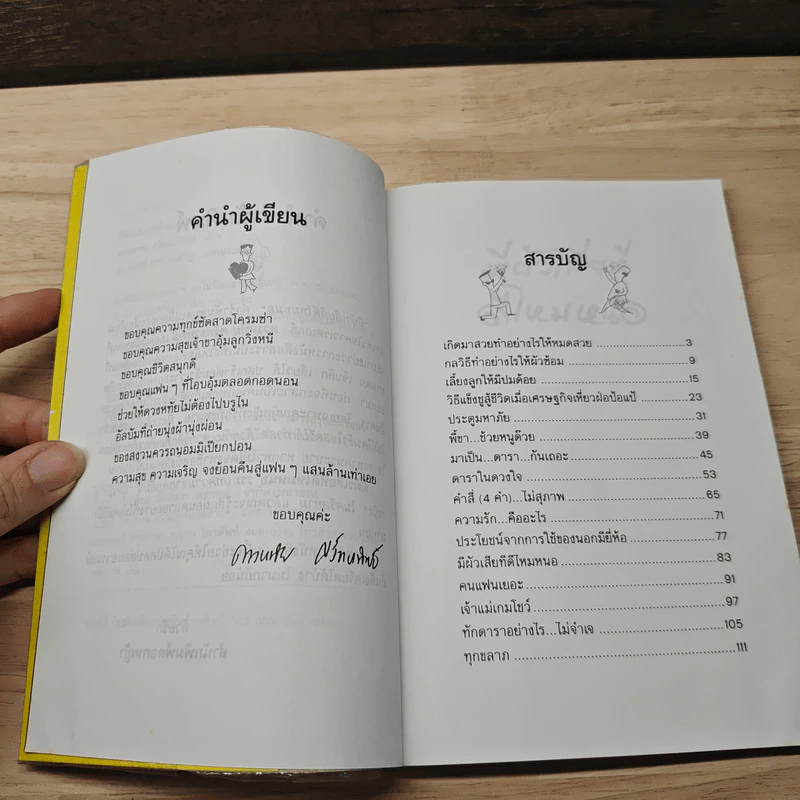 คำนำผู้เขียน
ขอบคุณความทุกข์ซัดสาดโครมซ่า
ขอบคุณความสุขเจ้าขาอุ้มลูกวิ่งหนี
ขอบคุณชีวิตสนุกดี
ขอบคุณแฟน ๆ ที่โอบอุ้มตลอดกอดนอน
ช่วยให้ดวงหทัยไม่ต้องไปบรูไน
อัลบัมที่ถ่ายนุ่งผ้านุ่งผ่อน
ของสงวนควรถนอมมิเปียกปอน
ความสุข ความเจริญ จงย้อนคืนสู่แฟน ๆ แสนล้านเท่าเอย
ขอบคุณค่ะ
สารบัญ
เกิดมาสวยทำอย่างไรให้หมดสวย 3
กลวิธีทำอย่างไรให้ผัวซ้อม 9
เลี้ยงลูกให้มีปมด้อย 15
วิธีแข็งขู้สู้ชีวิตเมื่อเศรษฐกิจเหี่ยวฝ่อป้อแป้ 23
ประตูมหาภัย 31
พี่ขา...ช่วยหนูด๊วย 39
มาเป็น...ดารา...กันเถอะ 45
ดาราในดวงใจ 53
คำสี่ (4 คำ)...ไม่สุภาพ 65
ความรัก...คืออะไร 71
ประโยชน์จากการใช้ของนอกมียี่ห้อ 77
มีผัวเสียทีดีไหมหนอ 83
คนแฟนเยอะ 91
เจ้าแม่เกมโชว์ 97
ทักดาราอย่างไร...ไม่จำเจ 105
ทุกขลาภ 111